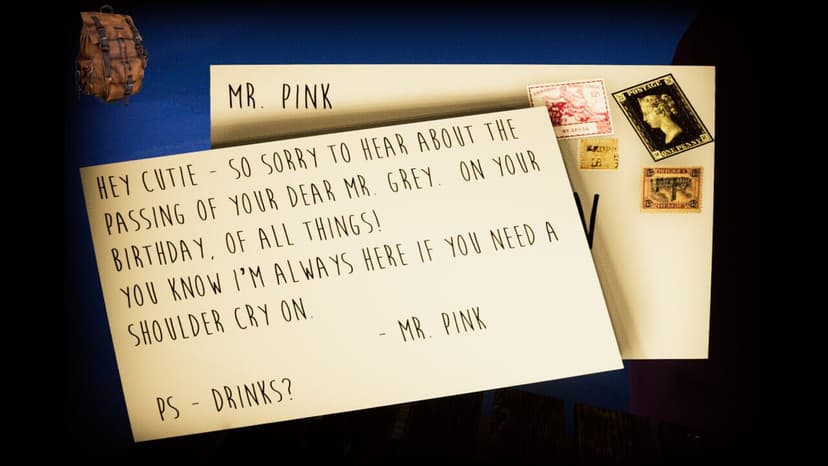 MR. PINK
HEY CUTIE - SO SORRY TO HEAR ABOUT THE
PASSING OF YOUR DEAR MR. GREY. ON YOUR
BIRTHDAY, OF ALL THINGS!
YOU KNOW I'M ALWAYS HERE IF YOU NEED A
SHOULDER CRY ON.
- MR. PINK
PS - DRINKS?
POSTAGE
ONE PENNY